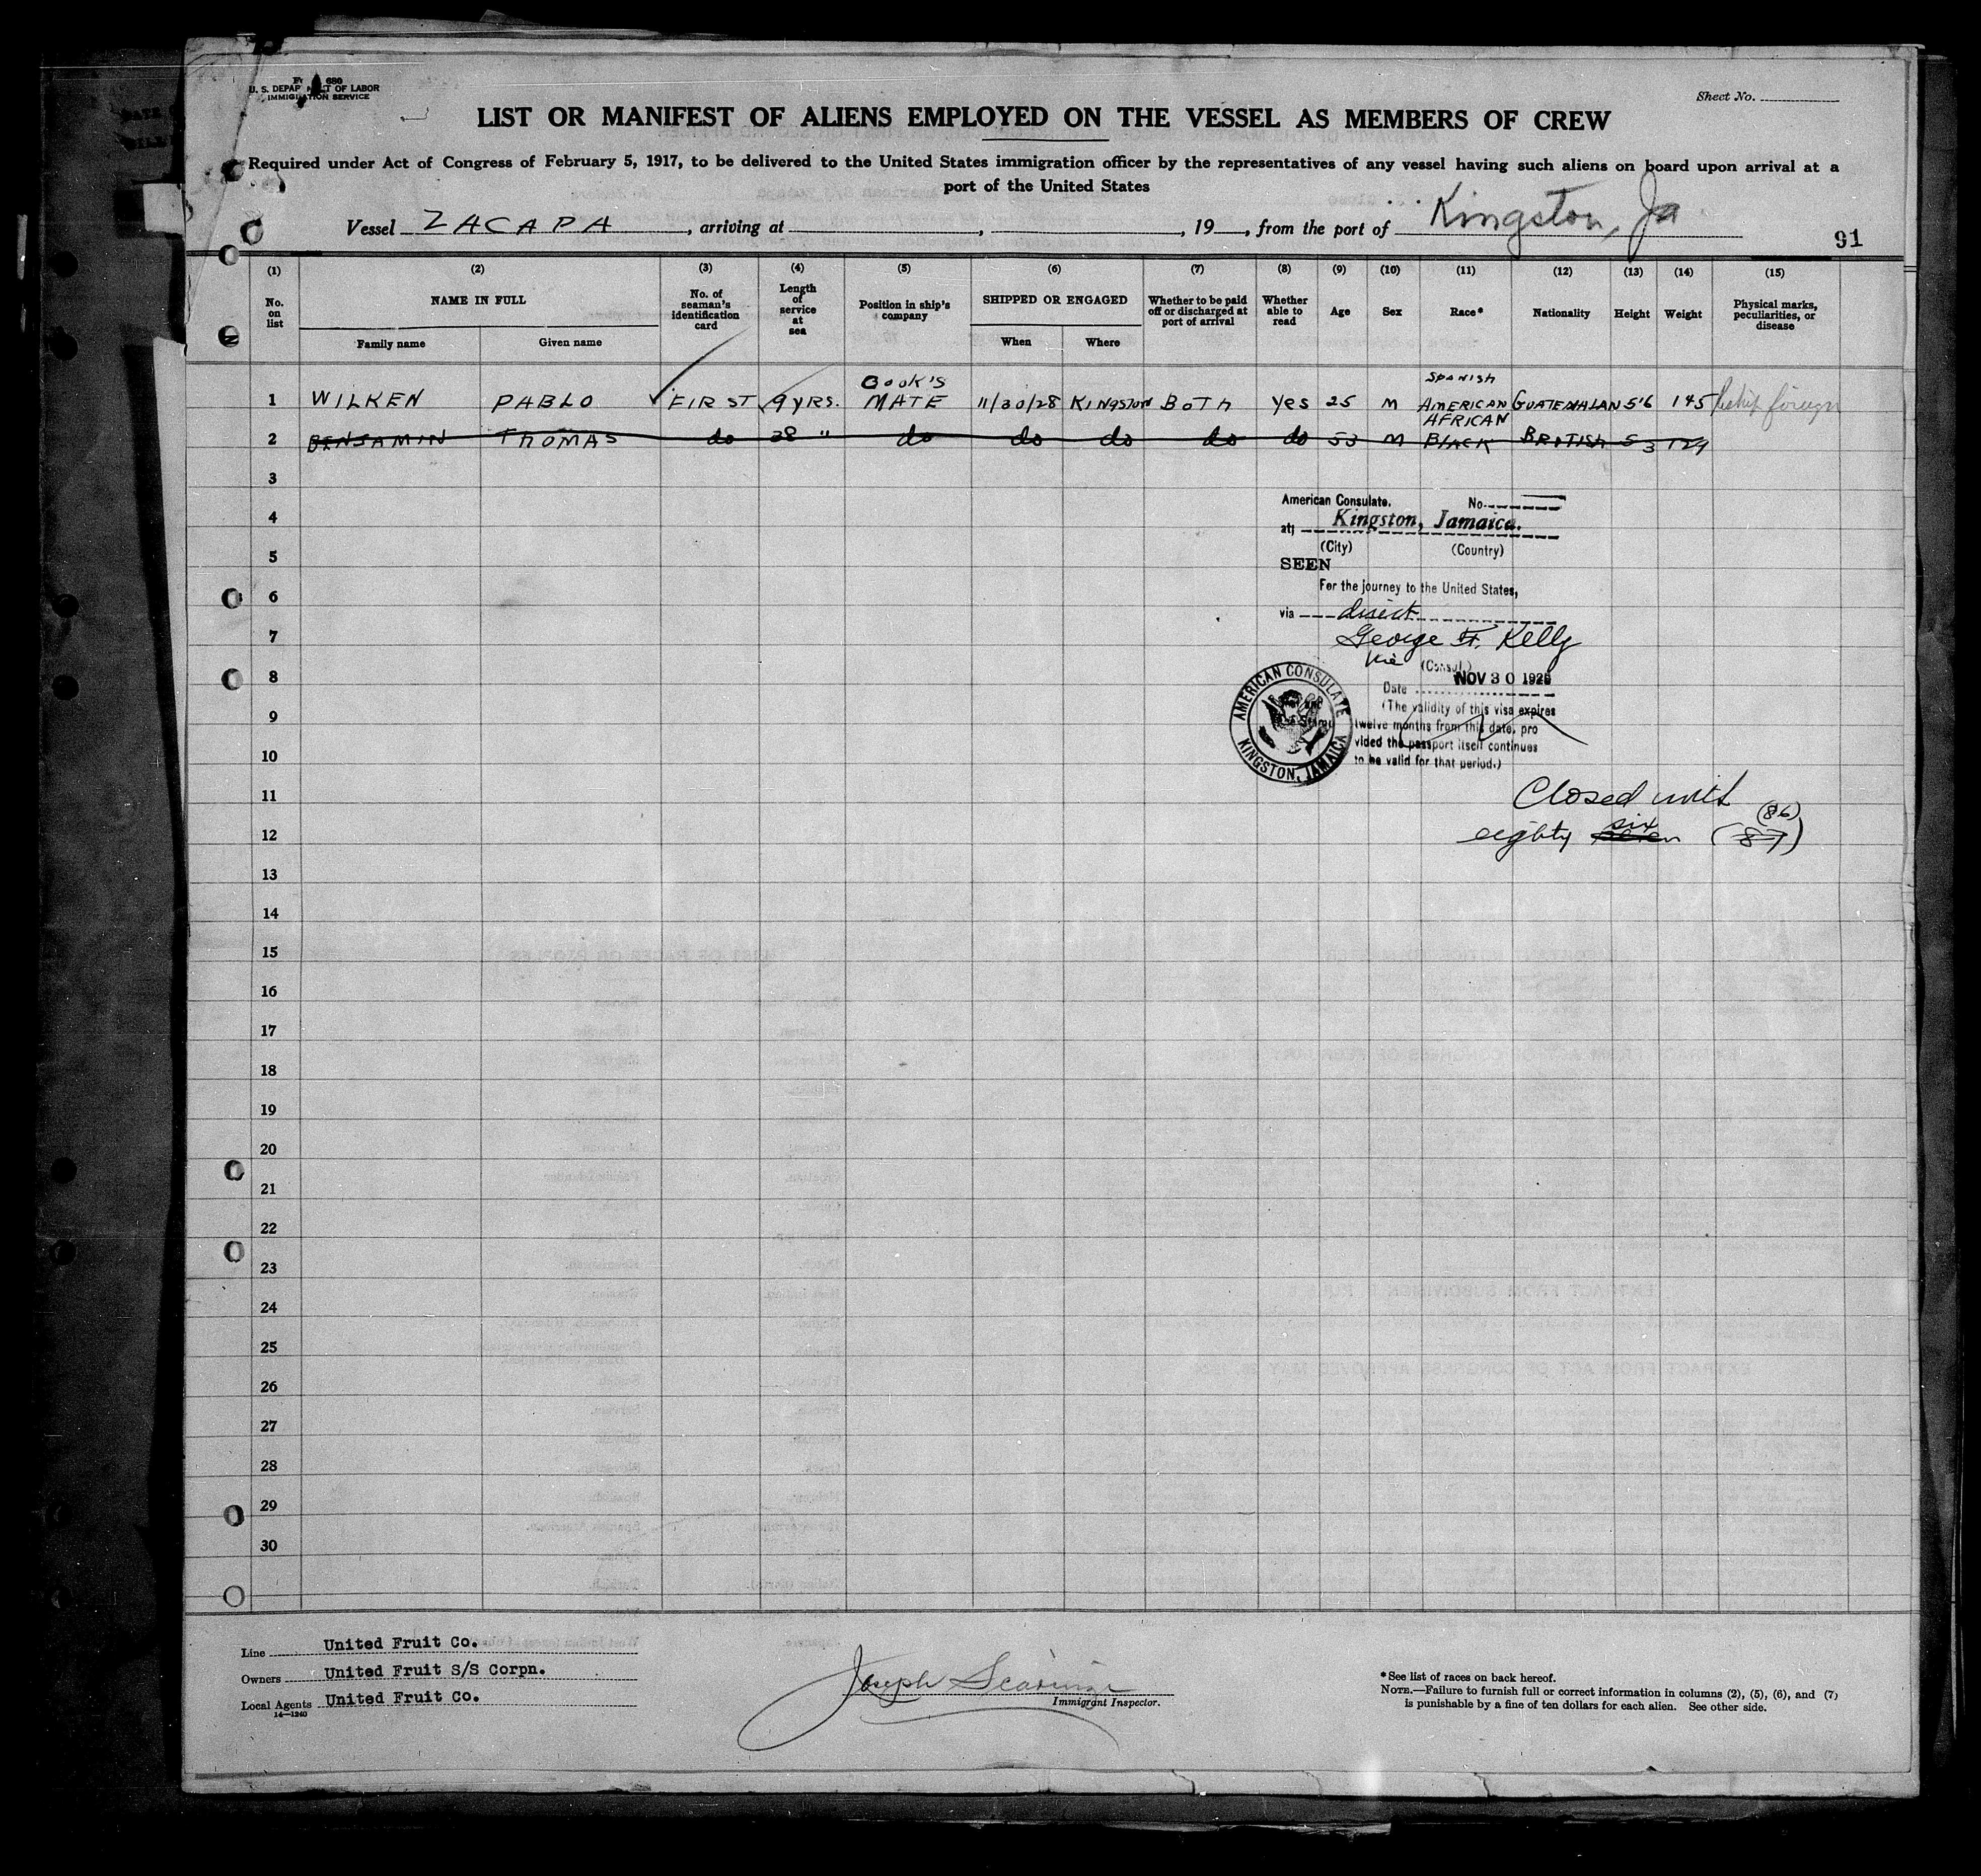 680
U. S. DEPARTMENT OF LABOR
IMMIGRATION SERVICE
Sheet No.
LIST OR MANIFEST OF ALIENS EMPLOYED ON THE VESSEL AS MEMBERS OF CREW
Required under Act of Congress of February 5, 1917, to be delivered to the United States immigration officer by the representatives of any vessel having such aliens on board upon arrival at a
port of the United States
Vessel ZACAPA, arriving at , , 19 , from the port of Kingston, Ja
91
(1) (2) (3) (4) (5) (6) (7) (8) (9) (10) (11) (12) (13) (14) (15)
No. on list NAME IN FULL No. of seaman's identification card Length of service at sea Position in ship's company SHIPPED OR ENGAGED Whether to be paid off or discharged at port of arrival Whether able to read Age Sex Race* Nationality Height Weight Physical marks, peculiarities, or disease
Family name Given name When Where
1 WILKEN PABLO FIRST 9 YRS. COOK'S MATE 11/30/28 KINGSTON BOTH YES 25 M SPANISH AMERICAN GUATEMALAN 5'6 145 foreign
2 BENJAMIN THOMAS do 38 " do do do do do 53 M AFRICAN BLACK BRITISH 5 3 129
3
4
5
6
7
8
9
10
11
12
13
14
15
16
17
18
19
20
21
22
23
24
25
26
27
28
29
30
American Consulate, No.
at Kingston, Jamaica.
(City) (Country)
SEEN
For the journey to the United States,
via direct
George F. Kelly
Vice (Consul.)
Date NOV 30 1928
(The validity of this visa expires
twelve months from this date, pro
vided the passport itself continues
to be valid for that period.)
AMERICAN CONSULATE
KINGSTON, JAMAICA
Closed with
eighty seven six (87) (86)
Line United Fruit Co.
Owners United Fruit S/S Corpn.
Local Agents United Fruit Co.
14—1240
Joseph Scaringi
Immigrant Inspector.
*See list of races on back hereof.
NOTE.—Failure to furnish full or correct information in columns (2), (5), (6), and (7)
is punishable by a fine of ten dollars for each alien. See other side.